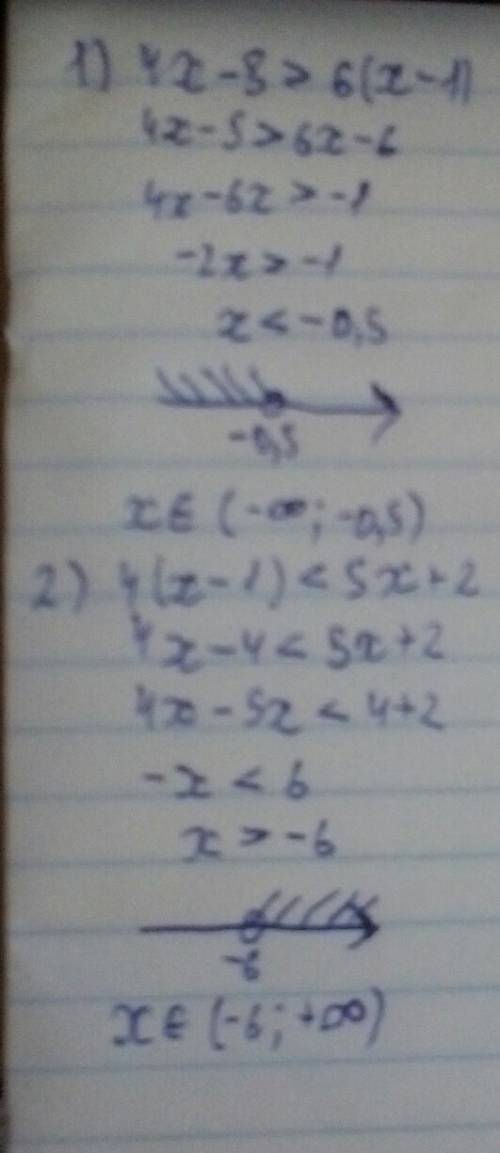 1) 4x-5>6(x-1)
4x-5>6x-6
4x-6x>-1
-2x>-1
x<-0,5
-0,5
x∈(-∞;-0,5)
2) 4(x-1)<5x+2
4x-4<5x+2
4x-5x<4+2
-x<6
x>-6
-6
x∈(-6;+∞)